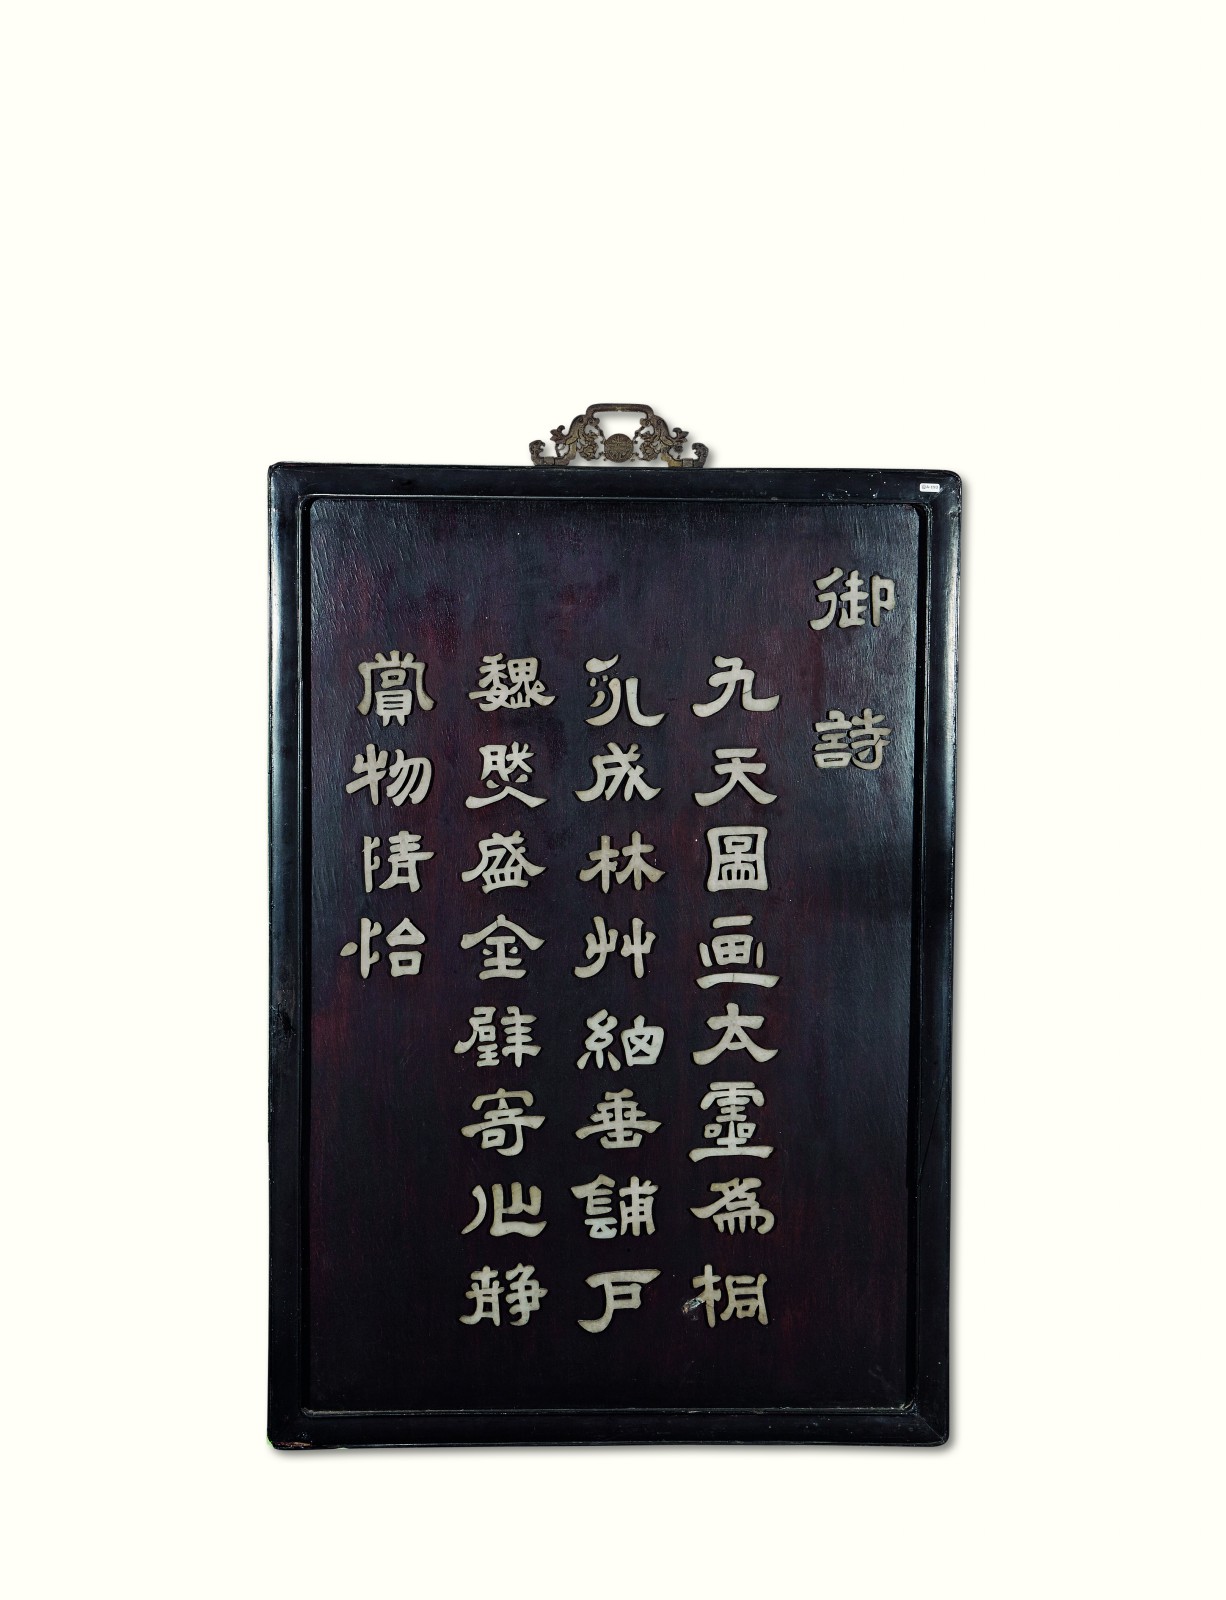 御詩
九天圖画太靈為桐
成林艸細垂舖戶
魏然盛金壁寄心静
賞物情怡